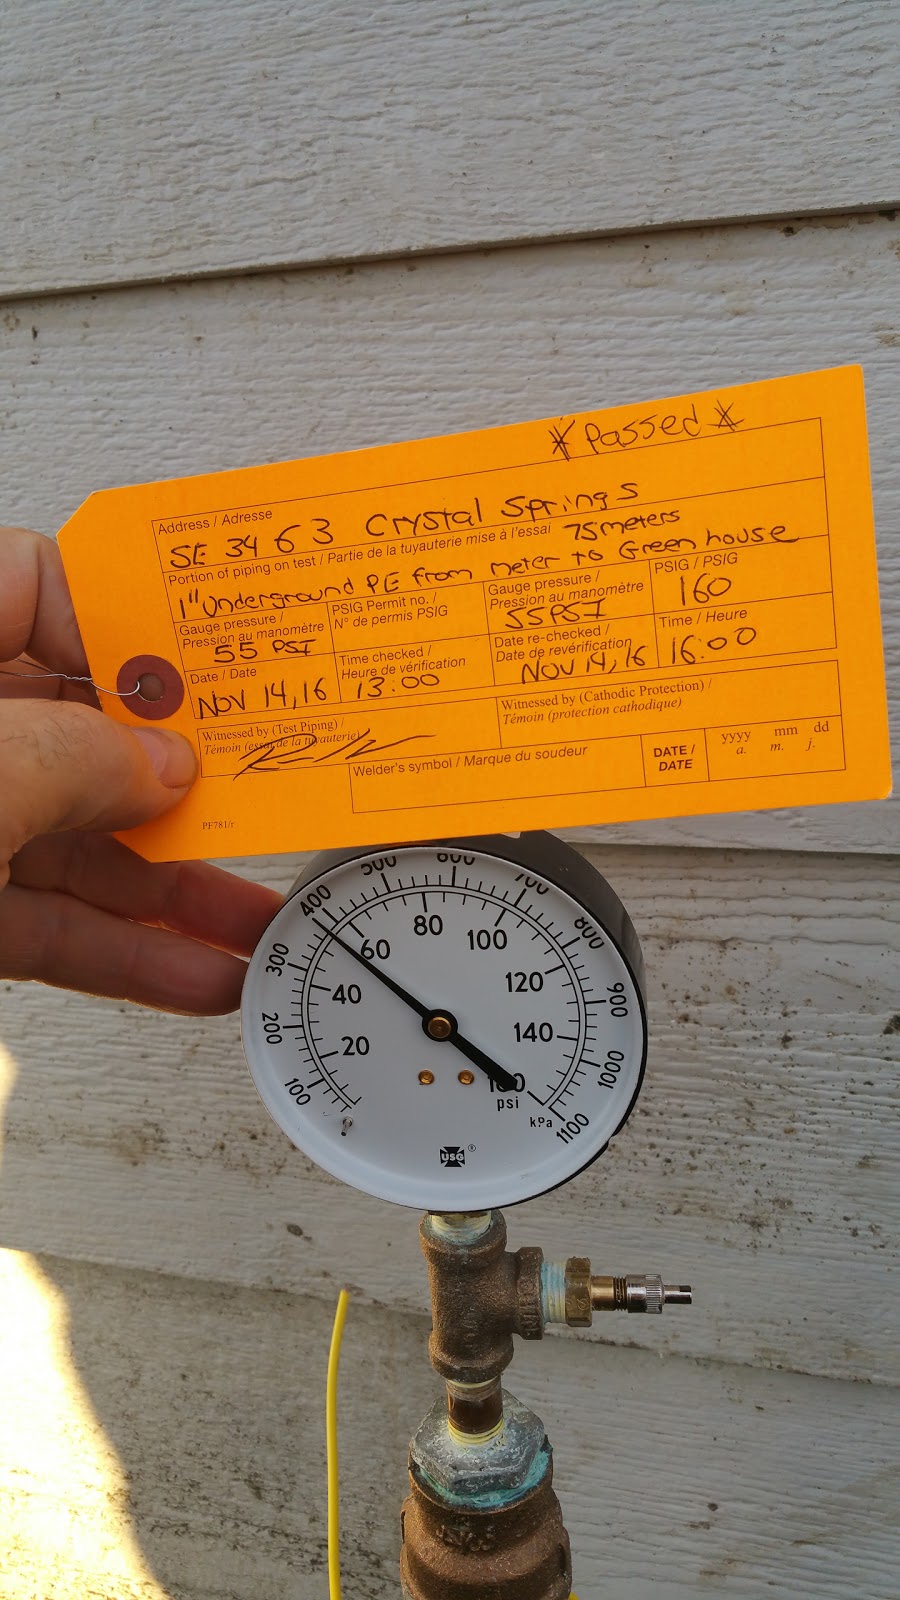 * Passed *
Address / Adresse
SE 34 63 Crystal Springs
Portion of piping on test / Partie de la tuyauterie mise à l'essai 75 meters
1" Underground PE from meter to Green house
Gauge pressure / Pression au manomètre
55 PSI
PSIG Permit no. / N° de permis PSIG
Gauge pressure / Pression au manomètre
55 PSI
PSIG / PSIG
160
Date / Date
NOV 14, 16
Time checked / Heure de vérification
13:00
Date re-checked / Date de revérification
NOV 14, 16
Time / Heure
16:00
Witnessed by (Test Piping) / Témoin (essai de la tuyauterie)
Witnessed by (Cathodic Protection) / Témoin (protection cathodique)
Welder's symbol / Marque du soudeur
DATE / DATE
yyyy mm dd
a. m. j.
PF781/r
100 200 300 400 500 600 700 800 900 1000 1100
20 40 60 80 100 120 140 160
psi
kPa
USG ®